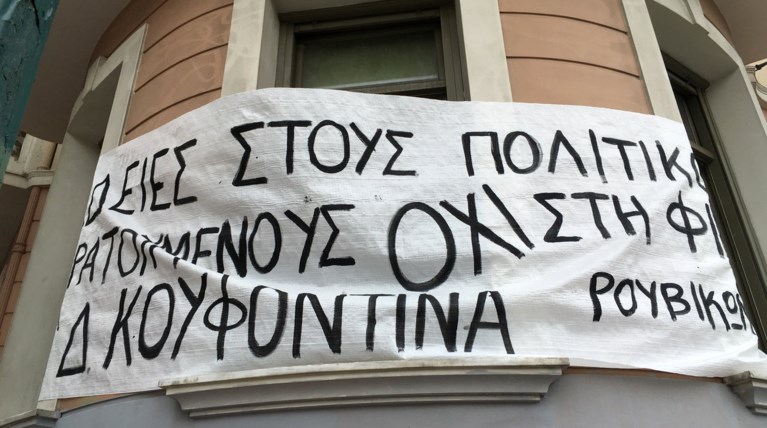 ΔΕΙΕΣ ΣΤΟΥΣ ΠΟΛΙΤΙΚ
ΡΑΤΟΥΜΕΝΟΥΣ ΟΧΙ ΣΤΗ ΦΙ
Δ. ΚΟΥΦΟΝΤΙΝΑ ΡΟΥΒΙΚΩΝ